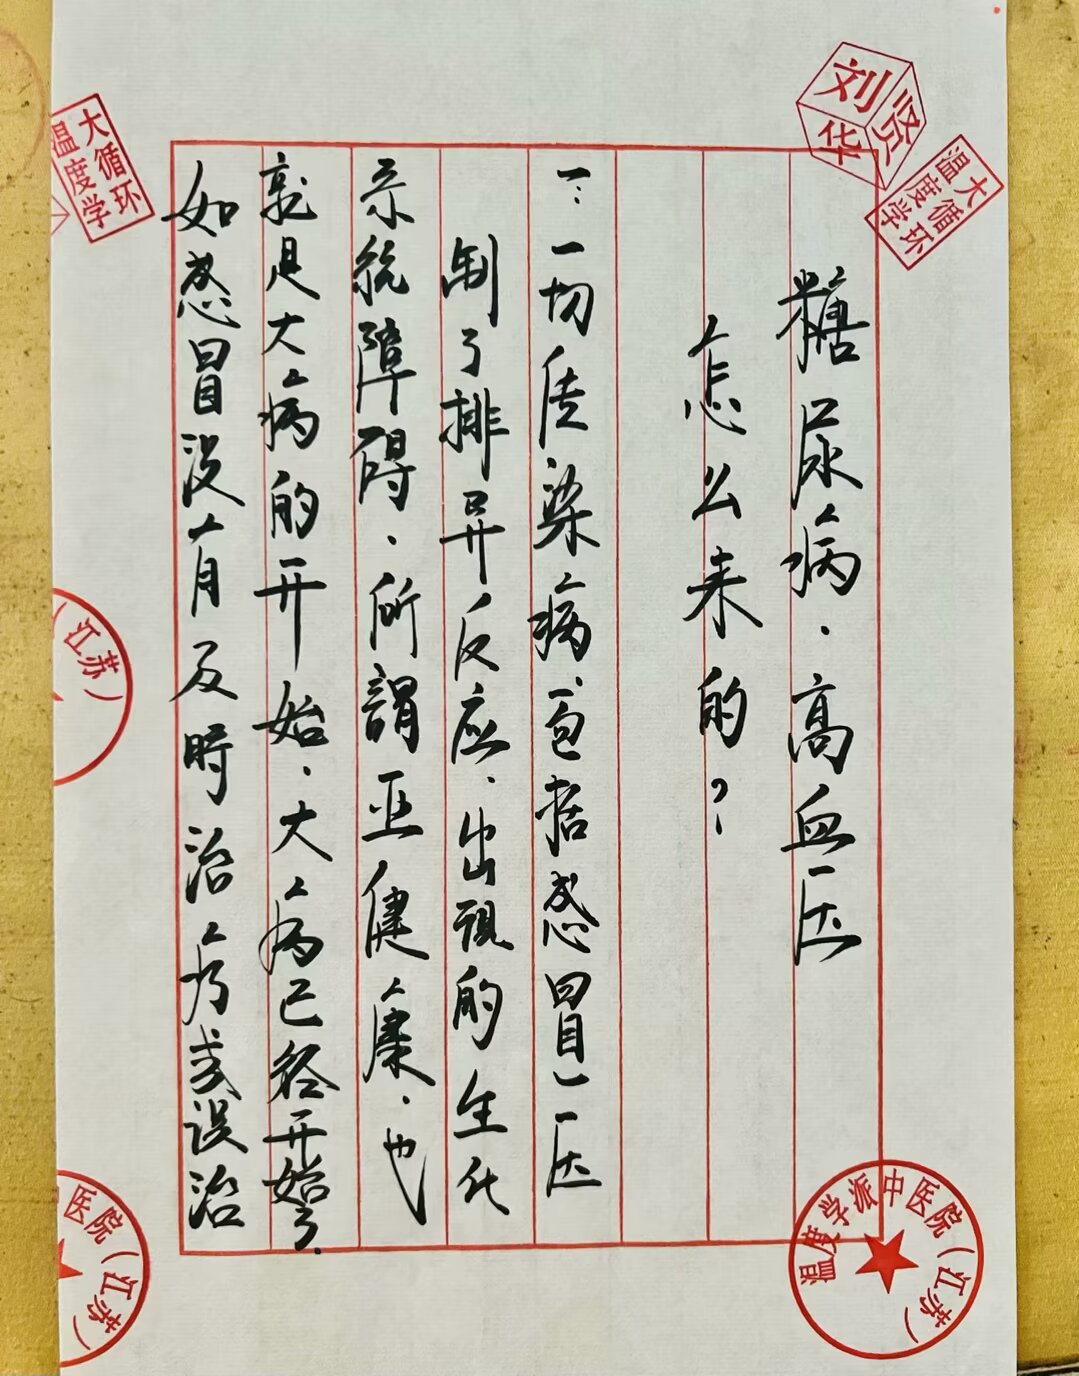 糖尿病、高血压
怎么来的？
一：一切传染病、包括感冒、压
制了排异反应、出现的生化
系统障碍、所謂亚健康、也
就是大病的开始、大病已经开始了.
如感冒没有及時治疗或误治
刘贤华
大循环
温度学
大循环
温度学
温度学派中医院（江苏）
（江苏）
医院（江苏）